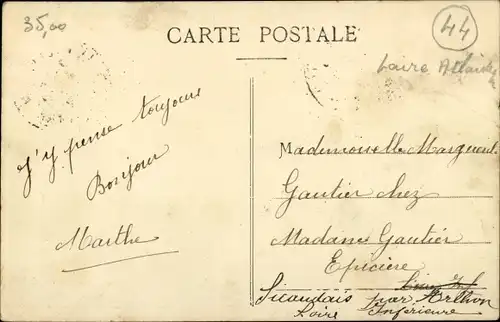 35,00
CARTE POSTALE
44
Loire Atlantiq
J'y pense toujours
Bonjour
Marthe
Mademoiselle Marguerit
Gautier chez
Madame Gautier
Epicière
Sicaudais par Arthon
Loire Inférieure